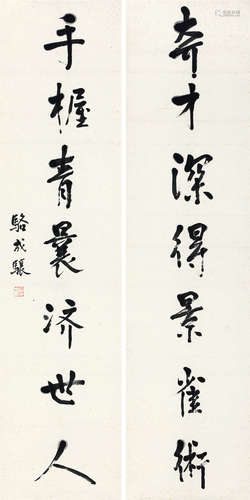 奇才深得景雀術
手握青囊济世人
駱成驤